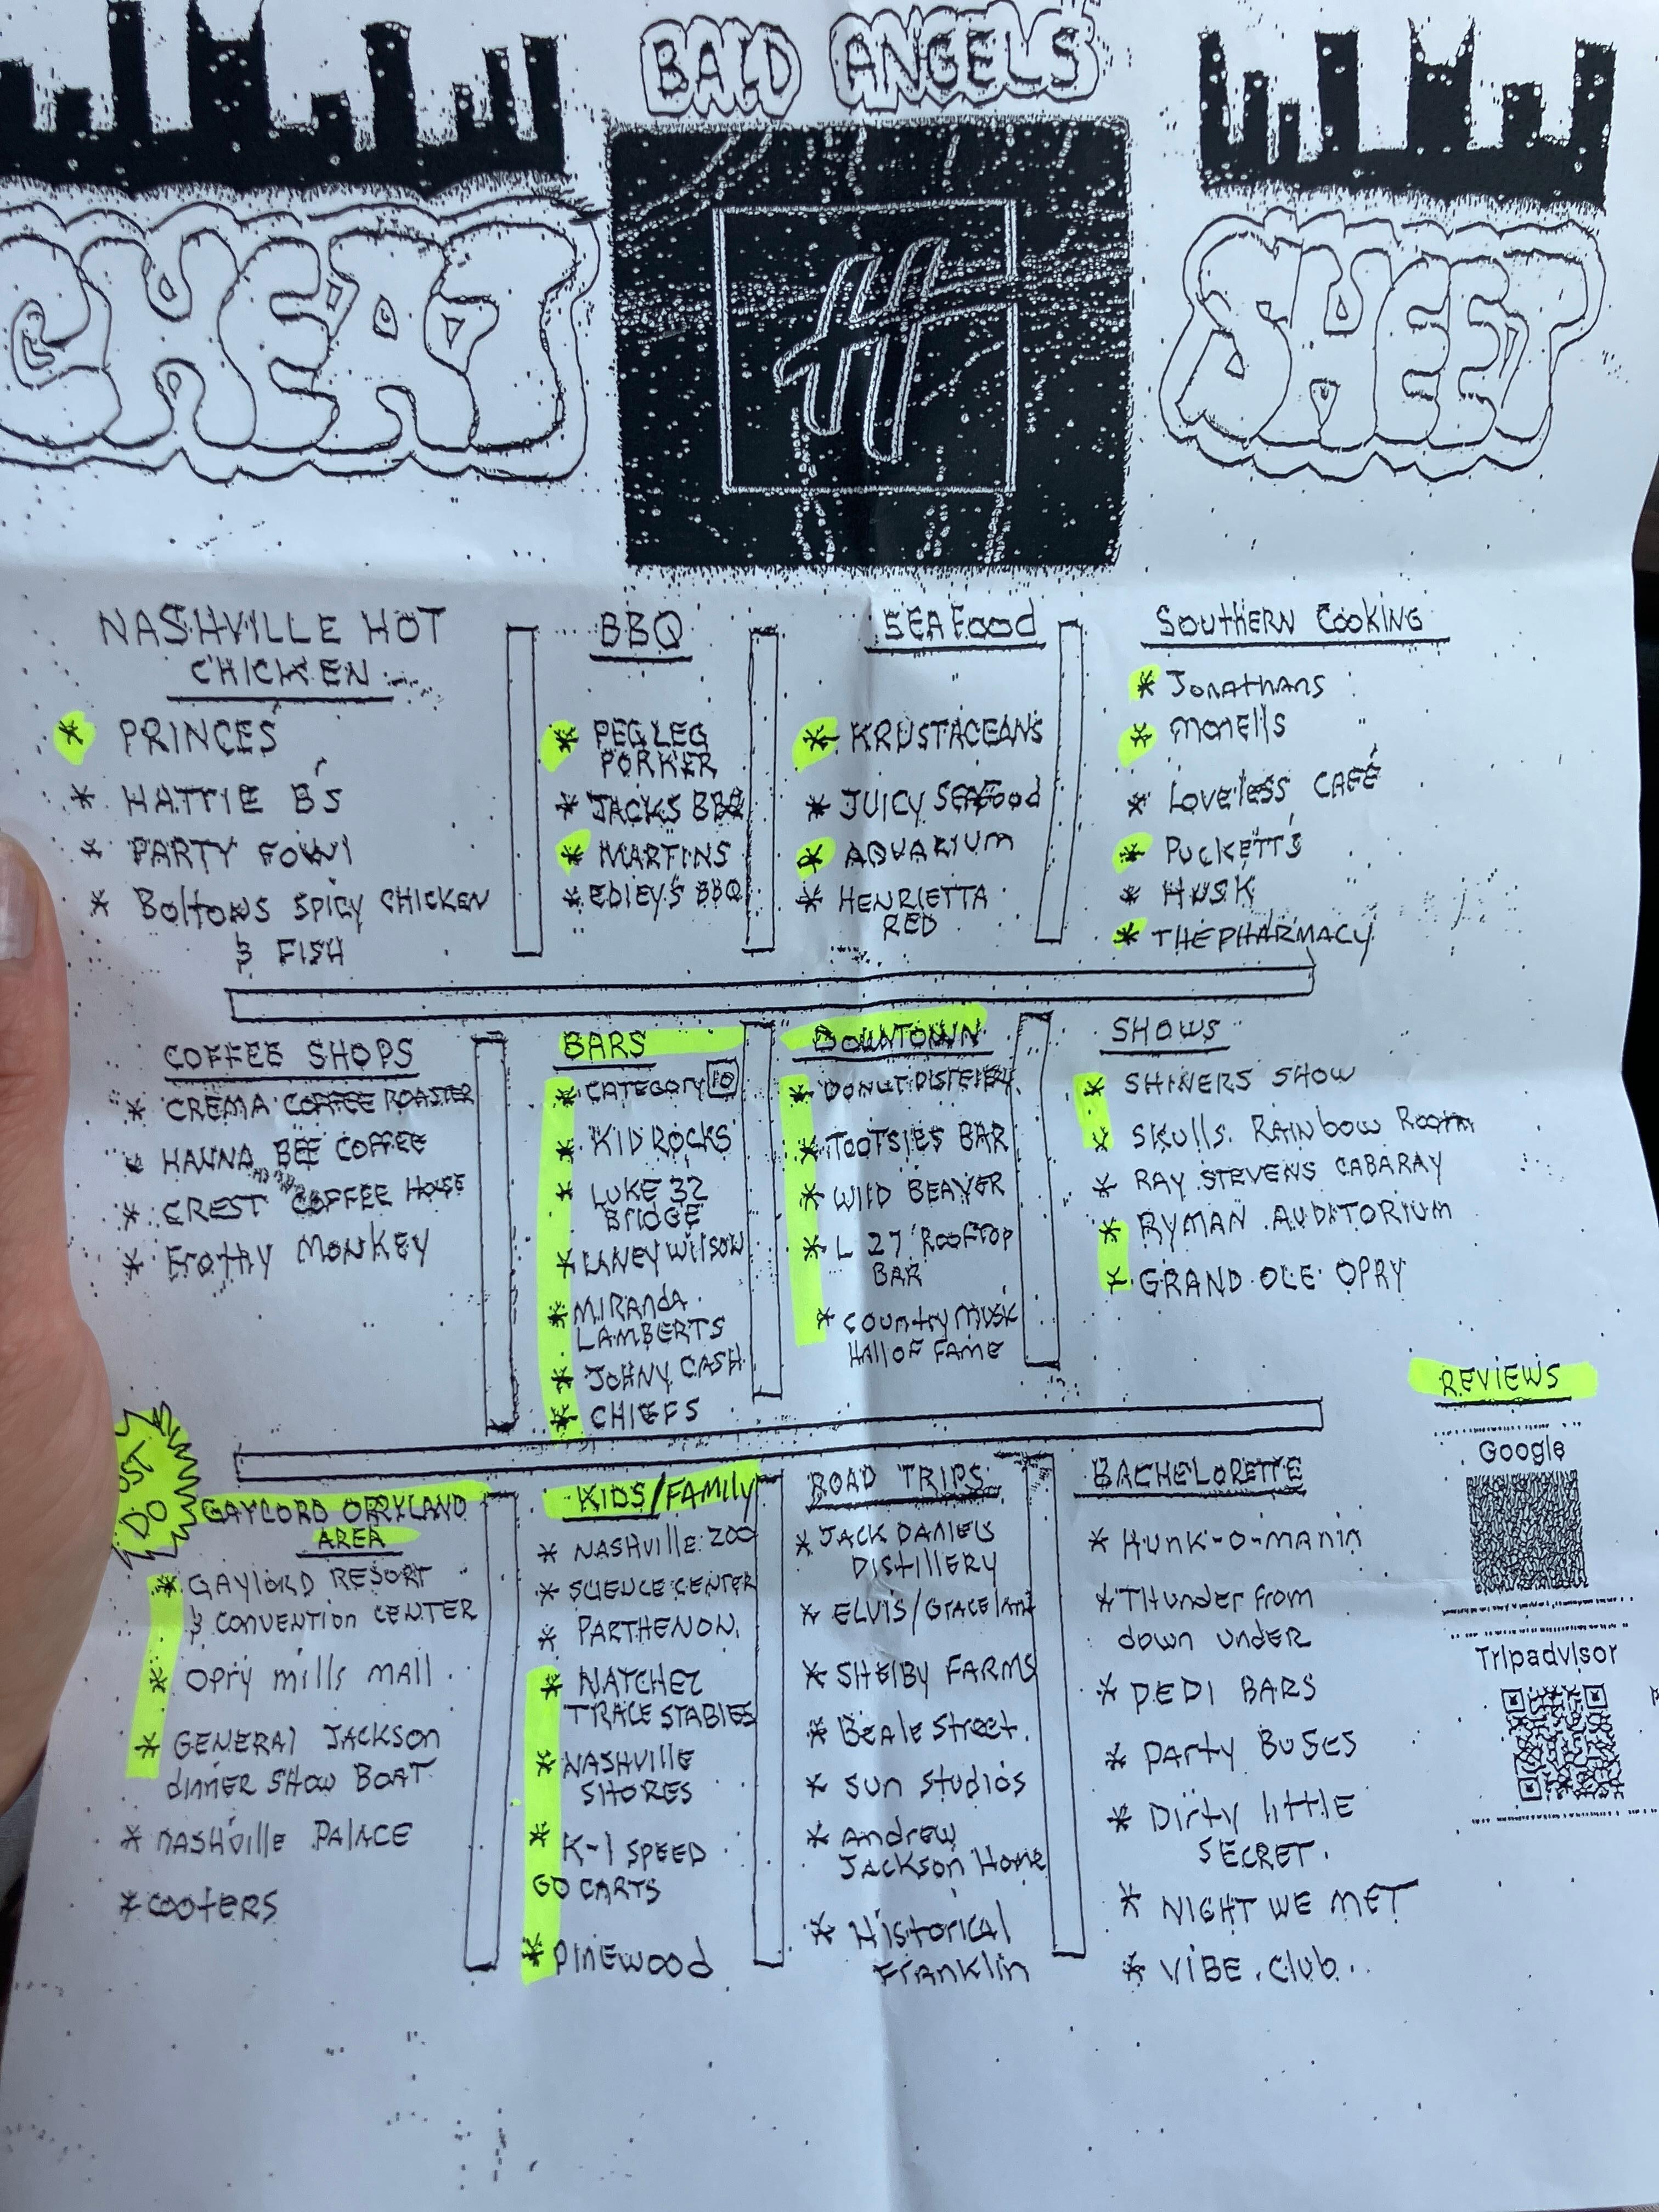 BALD ANGELS
CHEAT
SHEET
NASHVILLE HOT
CHICKEN
* PRINCES
* HATTIE B'S
* PARTY FOWl
* BoltoNS SPICY CHICKEN
& FISH
BBQ
* PEG LEG
PORKER
* JACKS BBQ
* MARTINS
* EDLEY'S BBQ
SEAFood
* KRUSTACEANS
* JUICY SEAFood
* AQUARIUM
* HENRIETTA
RED
Southern Cooking
* Jonathans
* monells
* Loveless CAFÉ
* Puckett's
* HUSK
* THE PHARMACY
COFFEE SHOPS
* CREMA COFFEE ROASTER
* HANNA BEE COFFEE
* CREST COFFEE HOUSE
* Frothy MONKEY
BARS
* CATEGORY 10
* KID ROCKS
* LUKE 32
BRIDGE
* LANEY WILSON
* MIRANdA
LAMBERTS
* JOHNY CASH
* CHIEFS
DOWNTOWN
* DONUT DISTILLERY
* TOOTSIES BAR
* WIlD BEAVER
* L 27 ROOFTOP
BAR
* Country Music
HAll OF FAME
SHOWS
* SHINERS SHOW
* SKUlls RAINbow Room
* RAY STEVENS CABARAY
* RYMAN AUDITORIUM
* GRAND OLE OPRY
REVIEWS
Google
Tripadvisor
DO
GAYLORD OPRYLAND
AREA
* GAYlORD RESORT
& CONVENTION CENTER
* Opry mills MAll
* GENERAl JACKSON
dinner SHOW BOAT
* NASHville PALACE
* COOTERS
KIDS/FAMIly
* NASHville ZOO
* SCIENCE CENTER
* PARTHENON
* NATCHEZ
TRACE STABlES
* NASHVILLE
SHORES
* K-1 SPEED
GO CARTS
* PINEWOOd
ROAD TRIPS
* JACK DANIELS
DISTIllERY
* ELVIS/GRACElANd
* SHElBY FARMS
* Beale Street
* Sun Studios
* ANdrew
JACkson Home
* HistoricAl
Franklin
BACHELORETTE
* Hunk-O-MANIA
* THunder From
down under
* PEDI BARS
* PARty BUSES
* Dirty little
SECRET.
* NIGHT WE MET
* VIBE Club